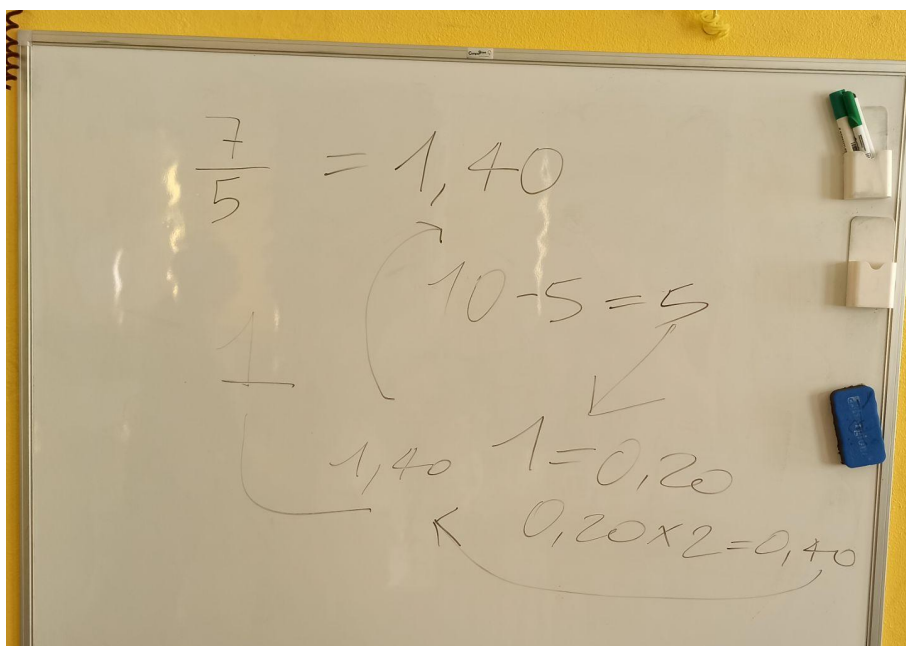 7
5
= 1,40
10-5=5
1
1,40
1=0,20
0,20×2=0,40